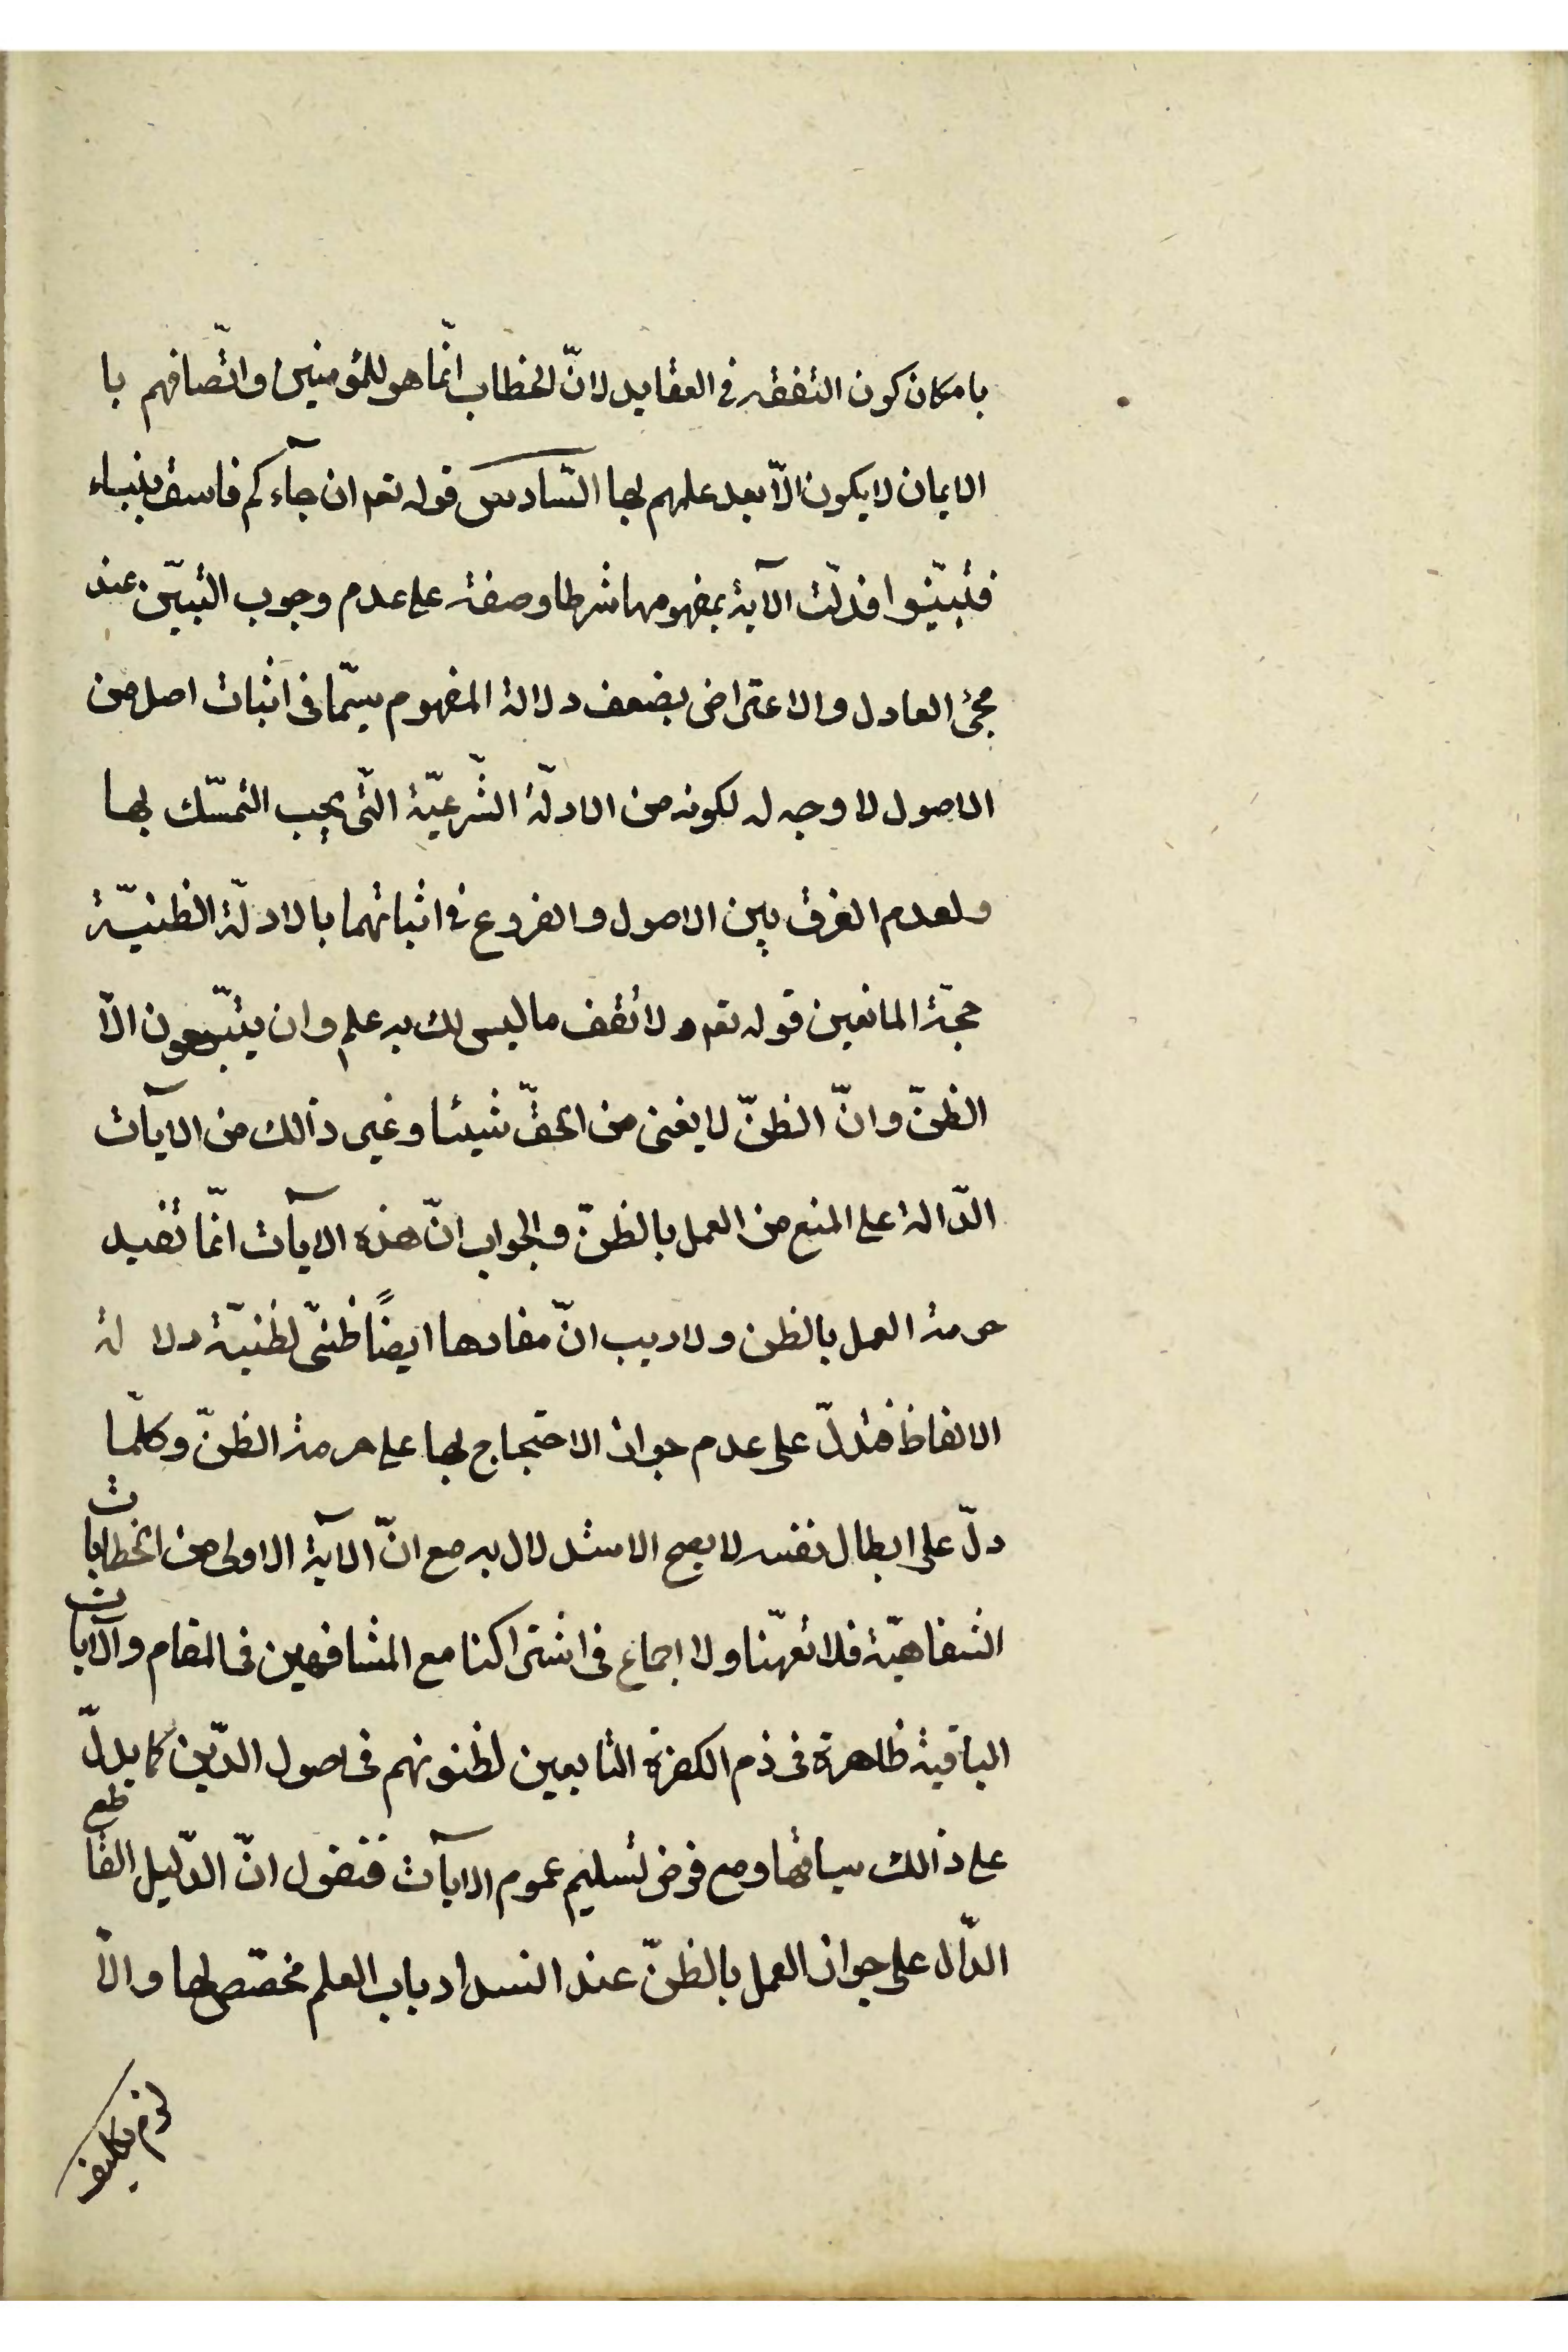 بامكان كون التفقه في العقايد لانّ الخطاب انّما هو للمؤمنين واتّصافهم با
الايمان لا يكون الّا بعد علمهم بها السّادس قوله تعه ان جآءكم فاسق بنباء
فتبيّنوا فدلّت الآية بمفهومها شرطا وصفة على عدم وجوب التبيّن عند
مجئ العادل والاعتراض بضعف دلالة المفهوم سيّما فى اثبات اصل من
الاصول لا وجه له لكونه من الادلّة الشّرعيّة الّتى يجب التمسّك بها
ولعدم الفرق بين الاصول والفروع في اثباتهما بالادلّة الظنيّة
حجّة المانعين قوله تعه ولا تقف ما ليس لك به علم وان يتّبعون الّا
الظنّ وانّ الظنّ لا يغنى من الحقّ شيئا وغير ذالك من الايآت
الدّالة على المنع من العمل بالظنّ والجواب انّ هذه الايآت انّما تفيد
حرمة العمل بالظن ولا ريب انّ مفادها ايضًا ظنّى لظنيّة دلا لة
الالفاظ فتدلّ على عدم جواز الاحتجاج بها على حرمة الظنّ وكلّما
دلّ على ابطال نفسه لا يصح الاستدلال به مع انّ الآية الاولى من الخطابات
الشفاهيّة فلا تعمّنا ولا اجماع فى اشتراكنا مع المشافهين فى المقام والآيات
الباقية ظاهرة فى ذم الكفرة التابعين لظنونهم فى اصول الدّين كما يدلّ
على ذالك سياقها ومع فرض تسليم عموم الايآت فنقول انّ الدّليل القاطع
الدّال على جواز العمل بالظنّ عند انسداد باب العلم مخصّص لها والّا
لزم تكليف